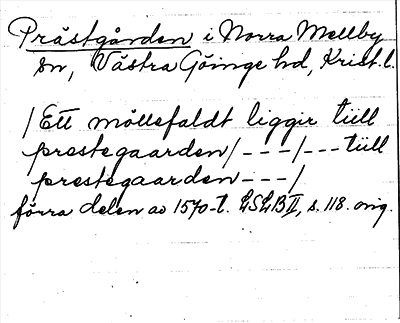 Prästgården i Norra Mellby
sn, Västra Göinge hd, Krist. l.
/Ett möllefaldt liggir tüll
prestegaarden/---/---tüll
prestegaarden---/
förra delen av 1570-t. LSLB II, s. 118. orig.